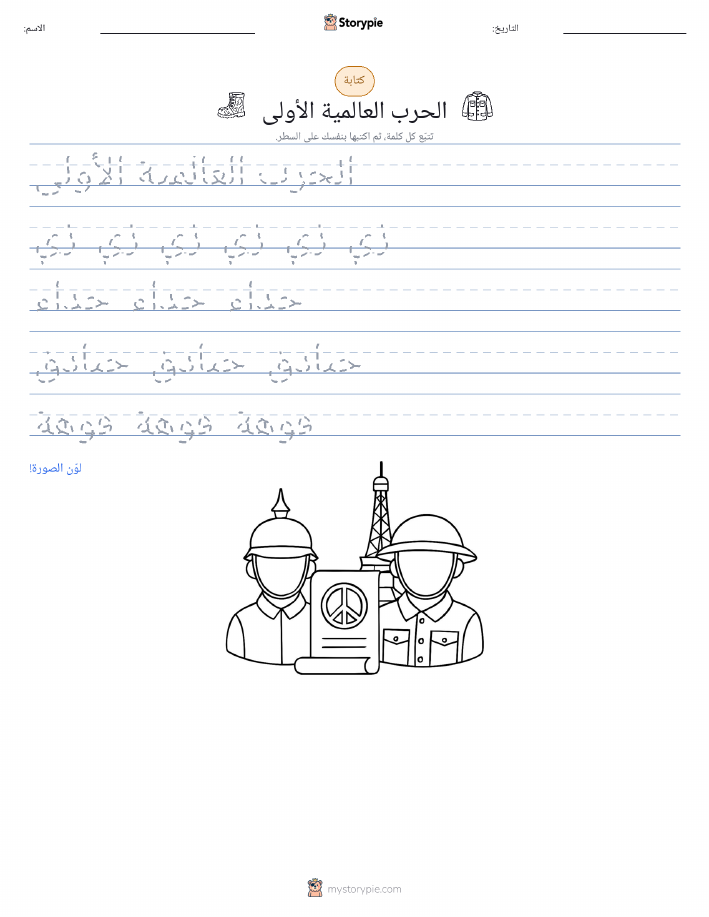 الاسم:
Storypie
التاريخ:
كتابة
الحرب العالمية الأولى
تتبّع كل كلمة، ثم اكتبها بنفسك على السطر.
الحرب العالمية الأولى
زي زي زي زي زي زي
حذاء حذاء حذاء
خنادق خنادق خنادق
لوّن الصورة!
mystorypie.com